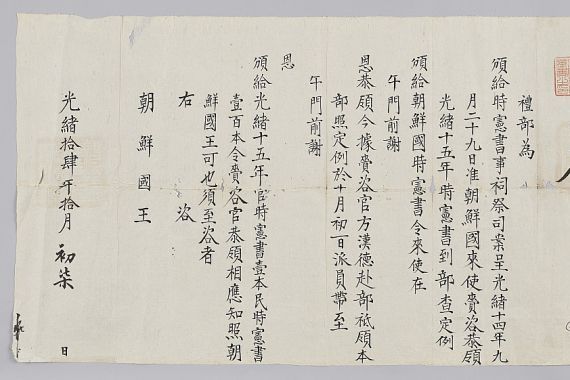 禮部為
頒給時憲書事祠祭司案呈光緒十四年九
月二十九日准朝鮮國來使賫咨恭領
光緒十五年時憲書到部查定例
頒給朝鮮國時憲書令來使在
午門前謝
恩恭領今據賫咨官方漢德赴部祗領本
部照定例於十月初一日派員帶至
午門前謝
恩
頒給光緒十五年官時憲書壹本民時憲書
壹百本令賫咨官恭領相應知照朝
鮮國王可也須至咨者
右咨
朝鮮國王
光緒拾肆年拾月初柒日